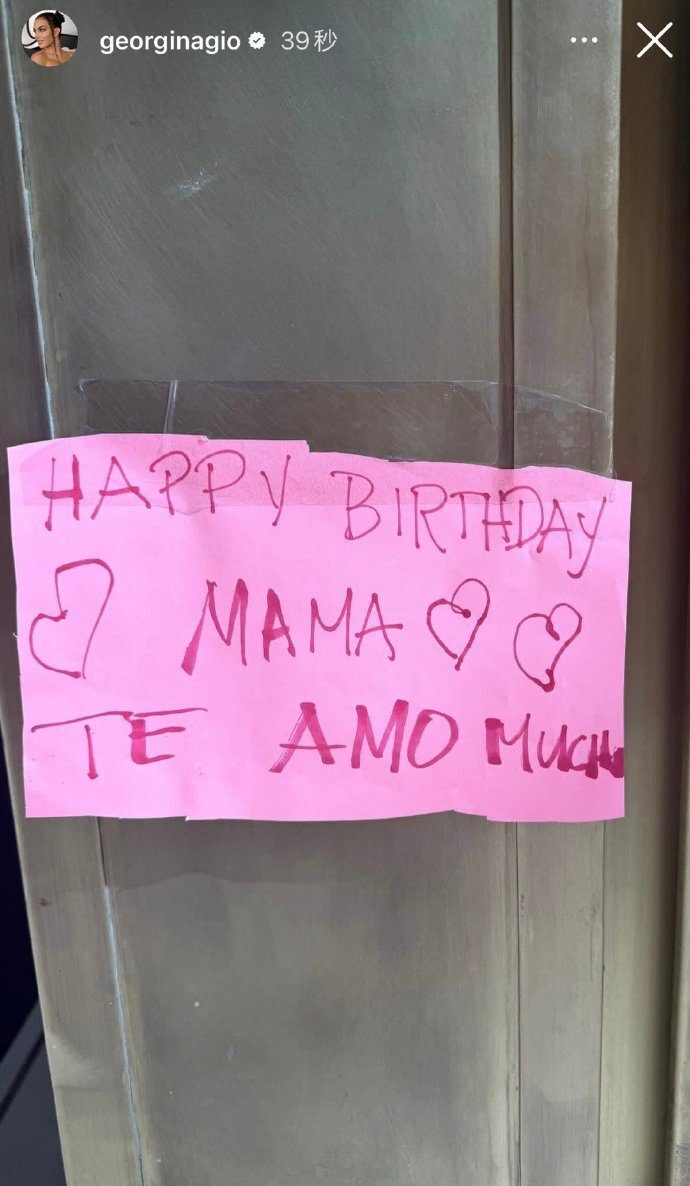 georginagio 39秒
HAPPY BIRTHDAY
MAMA
TE AMO MUCHO